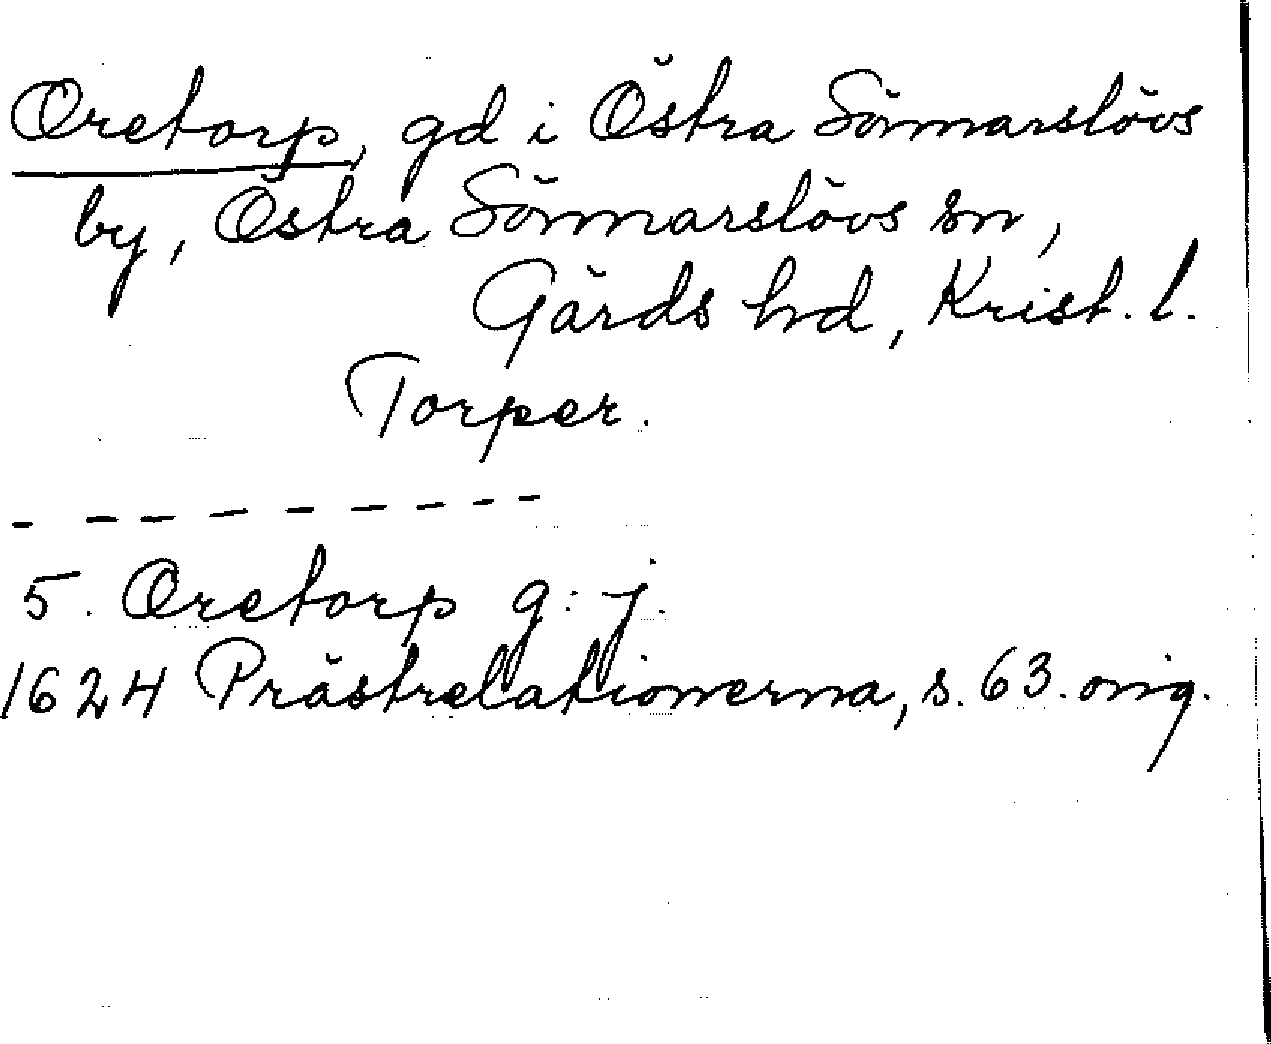 Oretorp, gd i Östra Sönnarslövs
by, Östra Sönnarslövs sn,
Gärds hd, Krist. l.
Torper.
- - - - - - - - -
5. Oretorp g: j.
1624 Prästrelationerna, s. 63. orig.